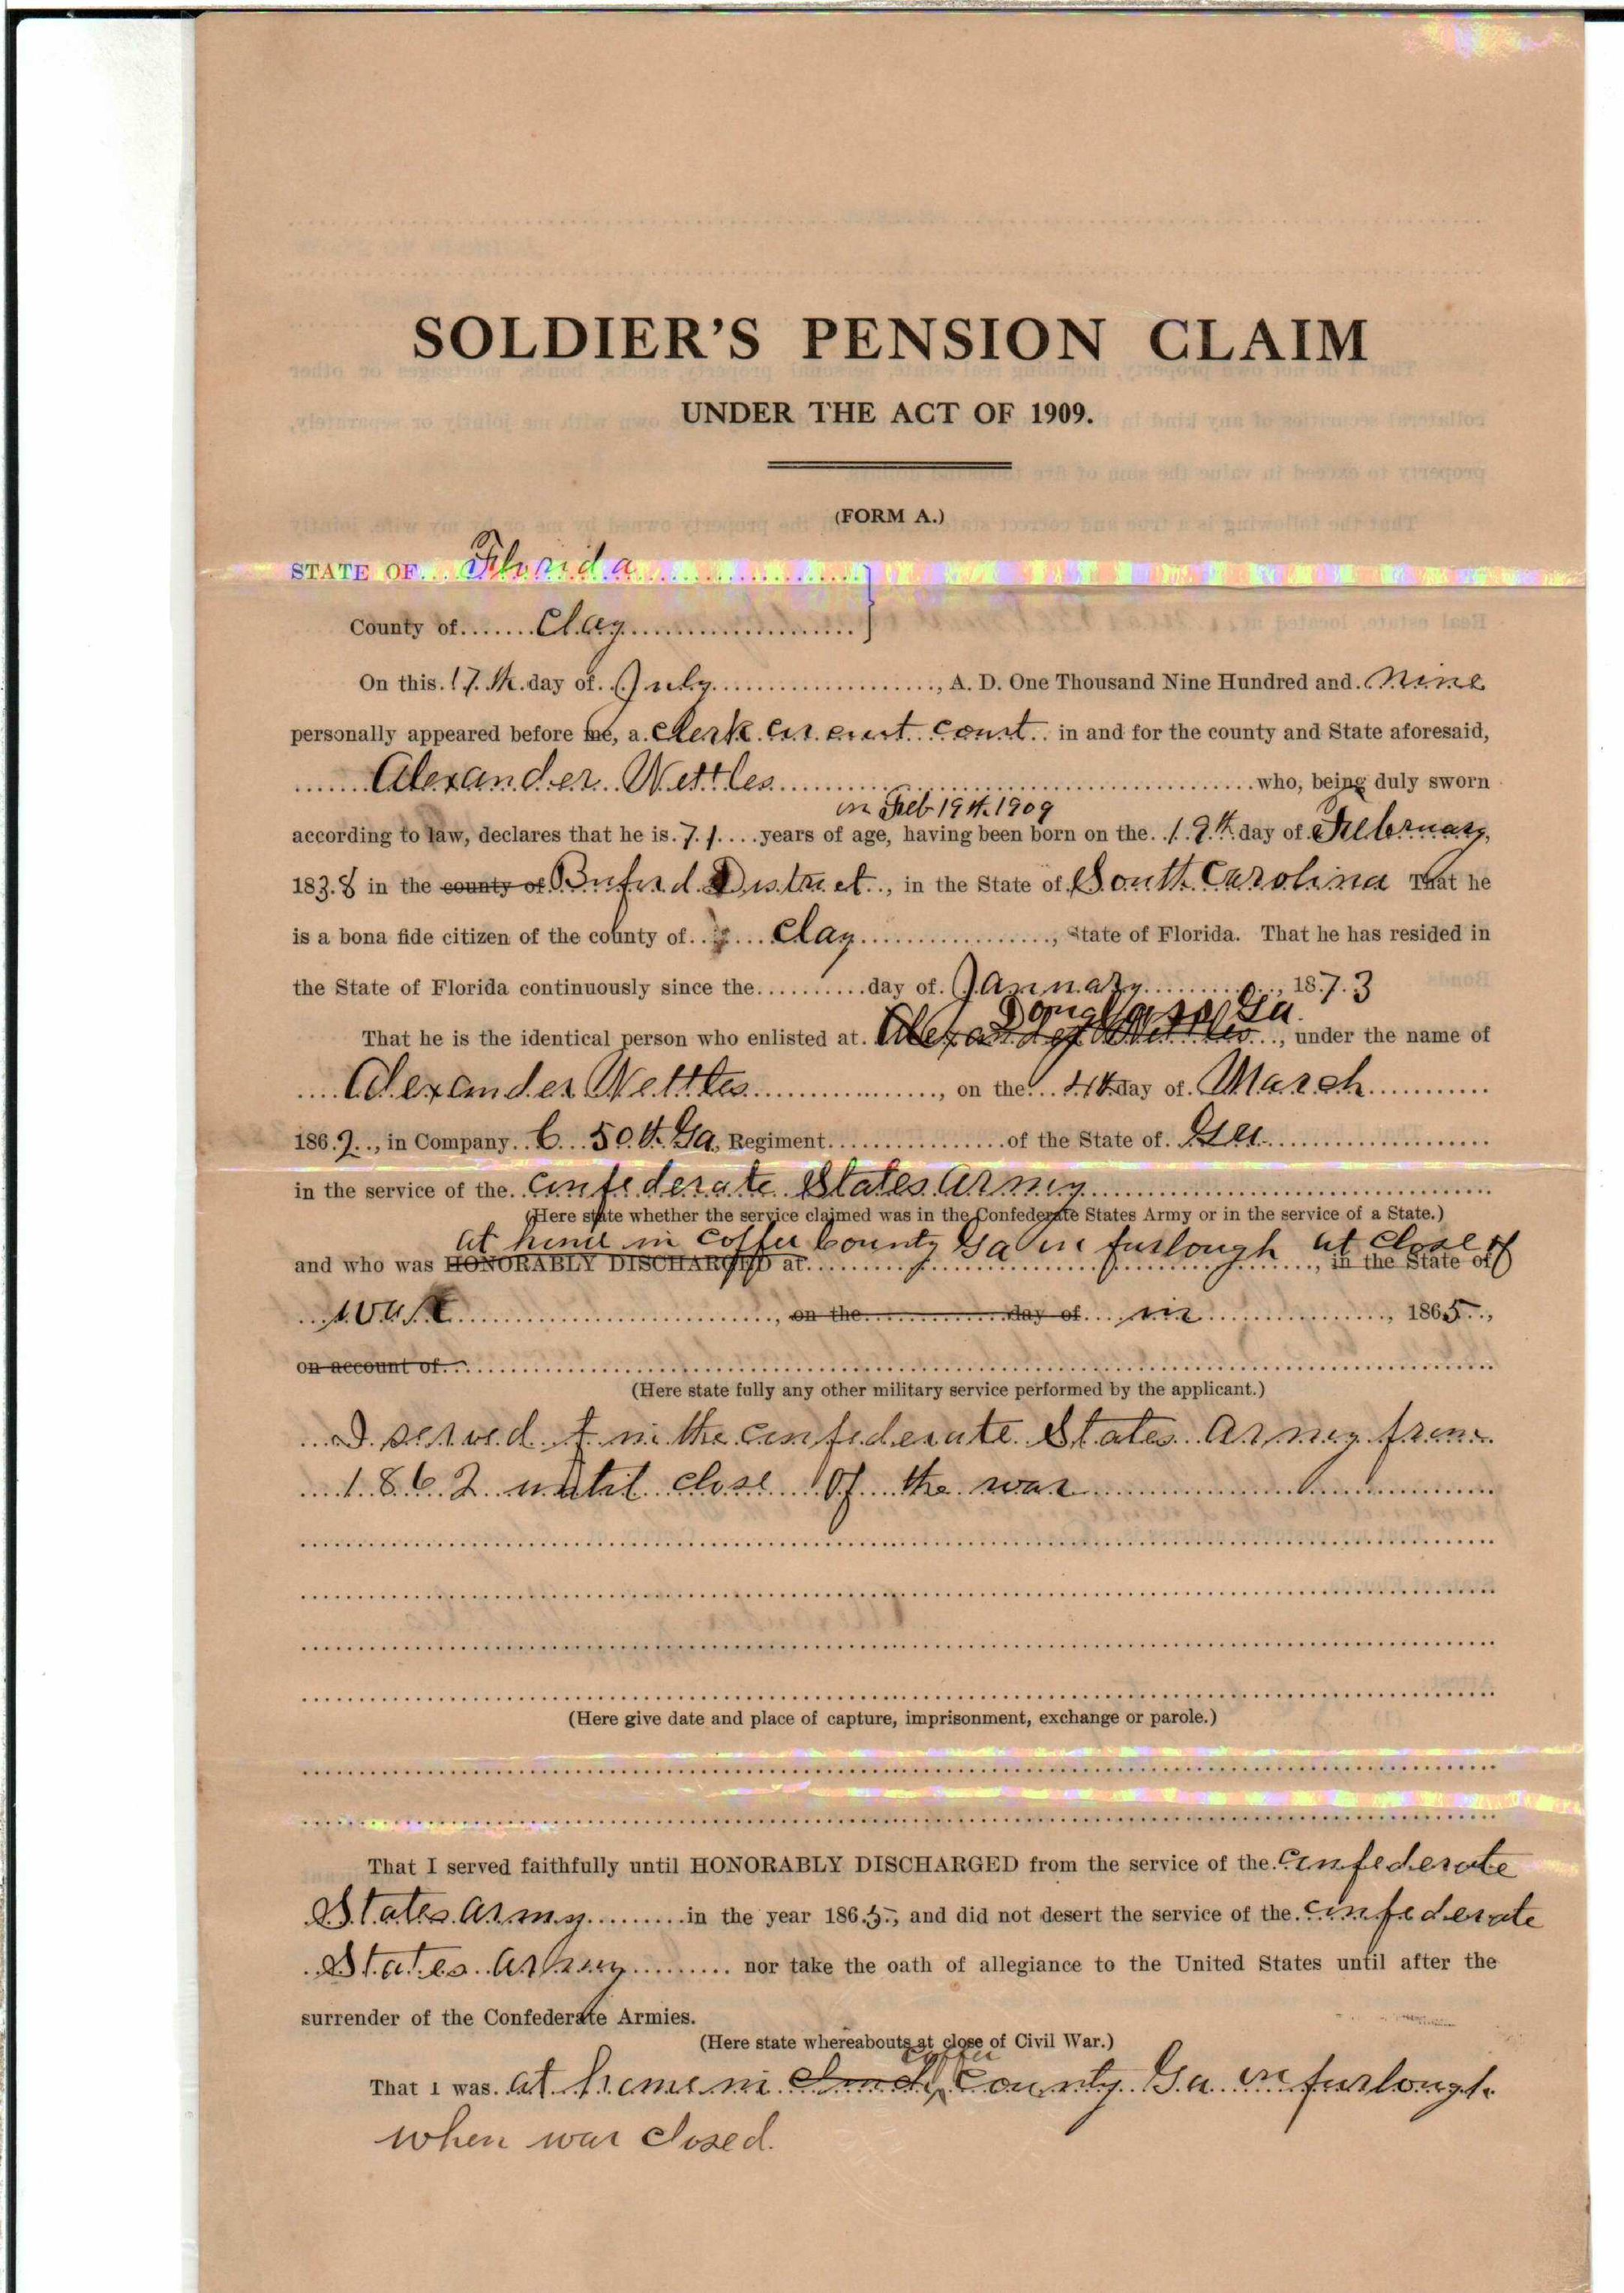 SOLDIER'S PENSION CLAIM
UNDER THE ACT OF 1909.
(FORM A.)
STATE OF Florida
County of Clay
On this 17th day of July, A. D. One Thousand Nine Hundred and Nine
personally appeared before me, a Clerk Circuit Court in and for the county and State aforesaid,
Alexander Nettles who, being duly sworn
in Feb 19th 1909
according to law, declares that he is 71 years of age, having been born on the 19th day of February,
1838 in the county of Buford District, in the State of South Carolina That he
is a bona fide citizen of the county of Clay, State of Florida. That he has resided in
the State of Florida continuously since the day of January, 1873
Douglass Ga.
That he is the identical person who enlisted at Alexander Nettles, under the name of
Alexander Nettles, on the 4th day of March
1862, in Company C 50th Ga. Regiment of the State of Ga
in the service of the Confederate States Army
(Here state whether the service claimed was in the Confederate States Army or in the service of a State.)
at home in Coffee County Ga on furlough at Close of
and who was HONORABLY DISCHARGED at, in the State of
war, on the day of in, 1865,
on account of
(Here state fully any other military service performed by the applicant.)
I served in the Confederate States Army from
1862 until close of the war
(Here give date and place of capture, imprisonment, exchange or parole.)
That I served faithfully until HONORABLY DISCHARGED from the service of the Confederate
States Army in the year 1865, and did not desert the service of the Confederate
States Army nor take the oath of allegiance to the United States until after the
surrender of the Confederate Armies.
(Here state whereabouts at close of Civil War.)
Coffee
That I was at home in County Ga on furlough
when war closed.